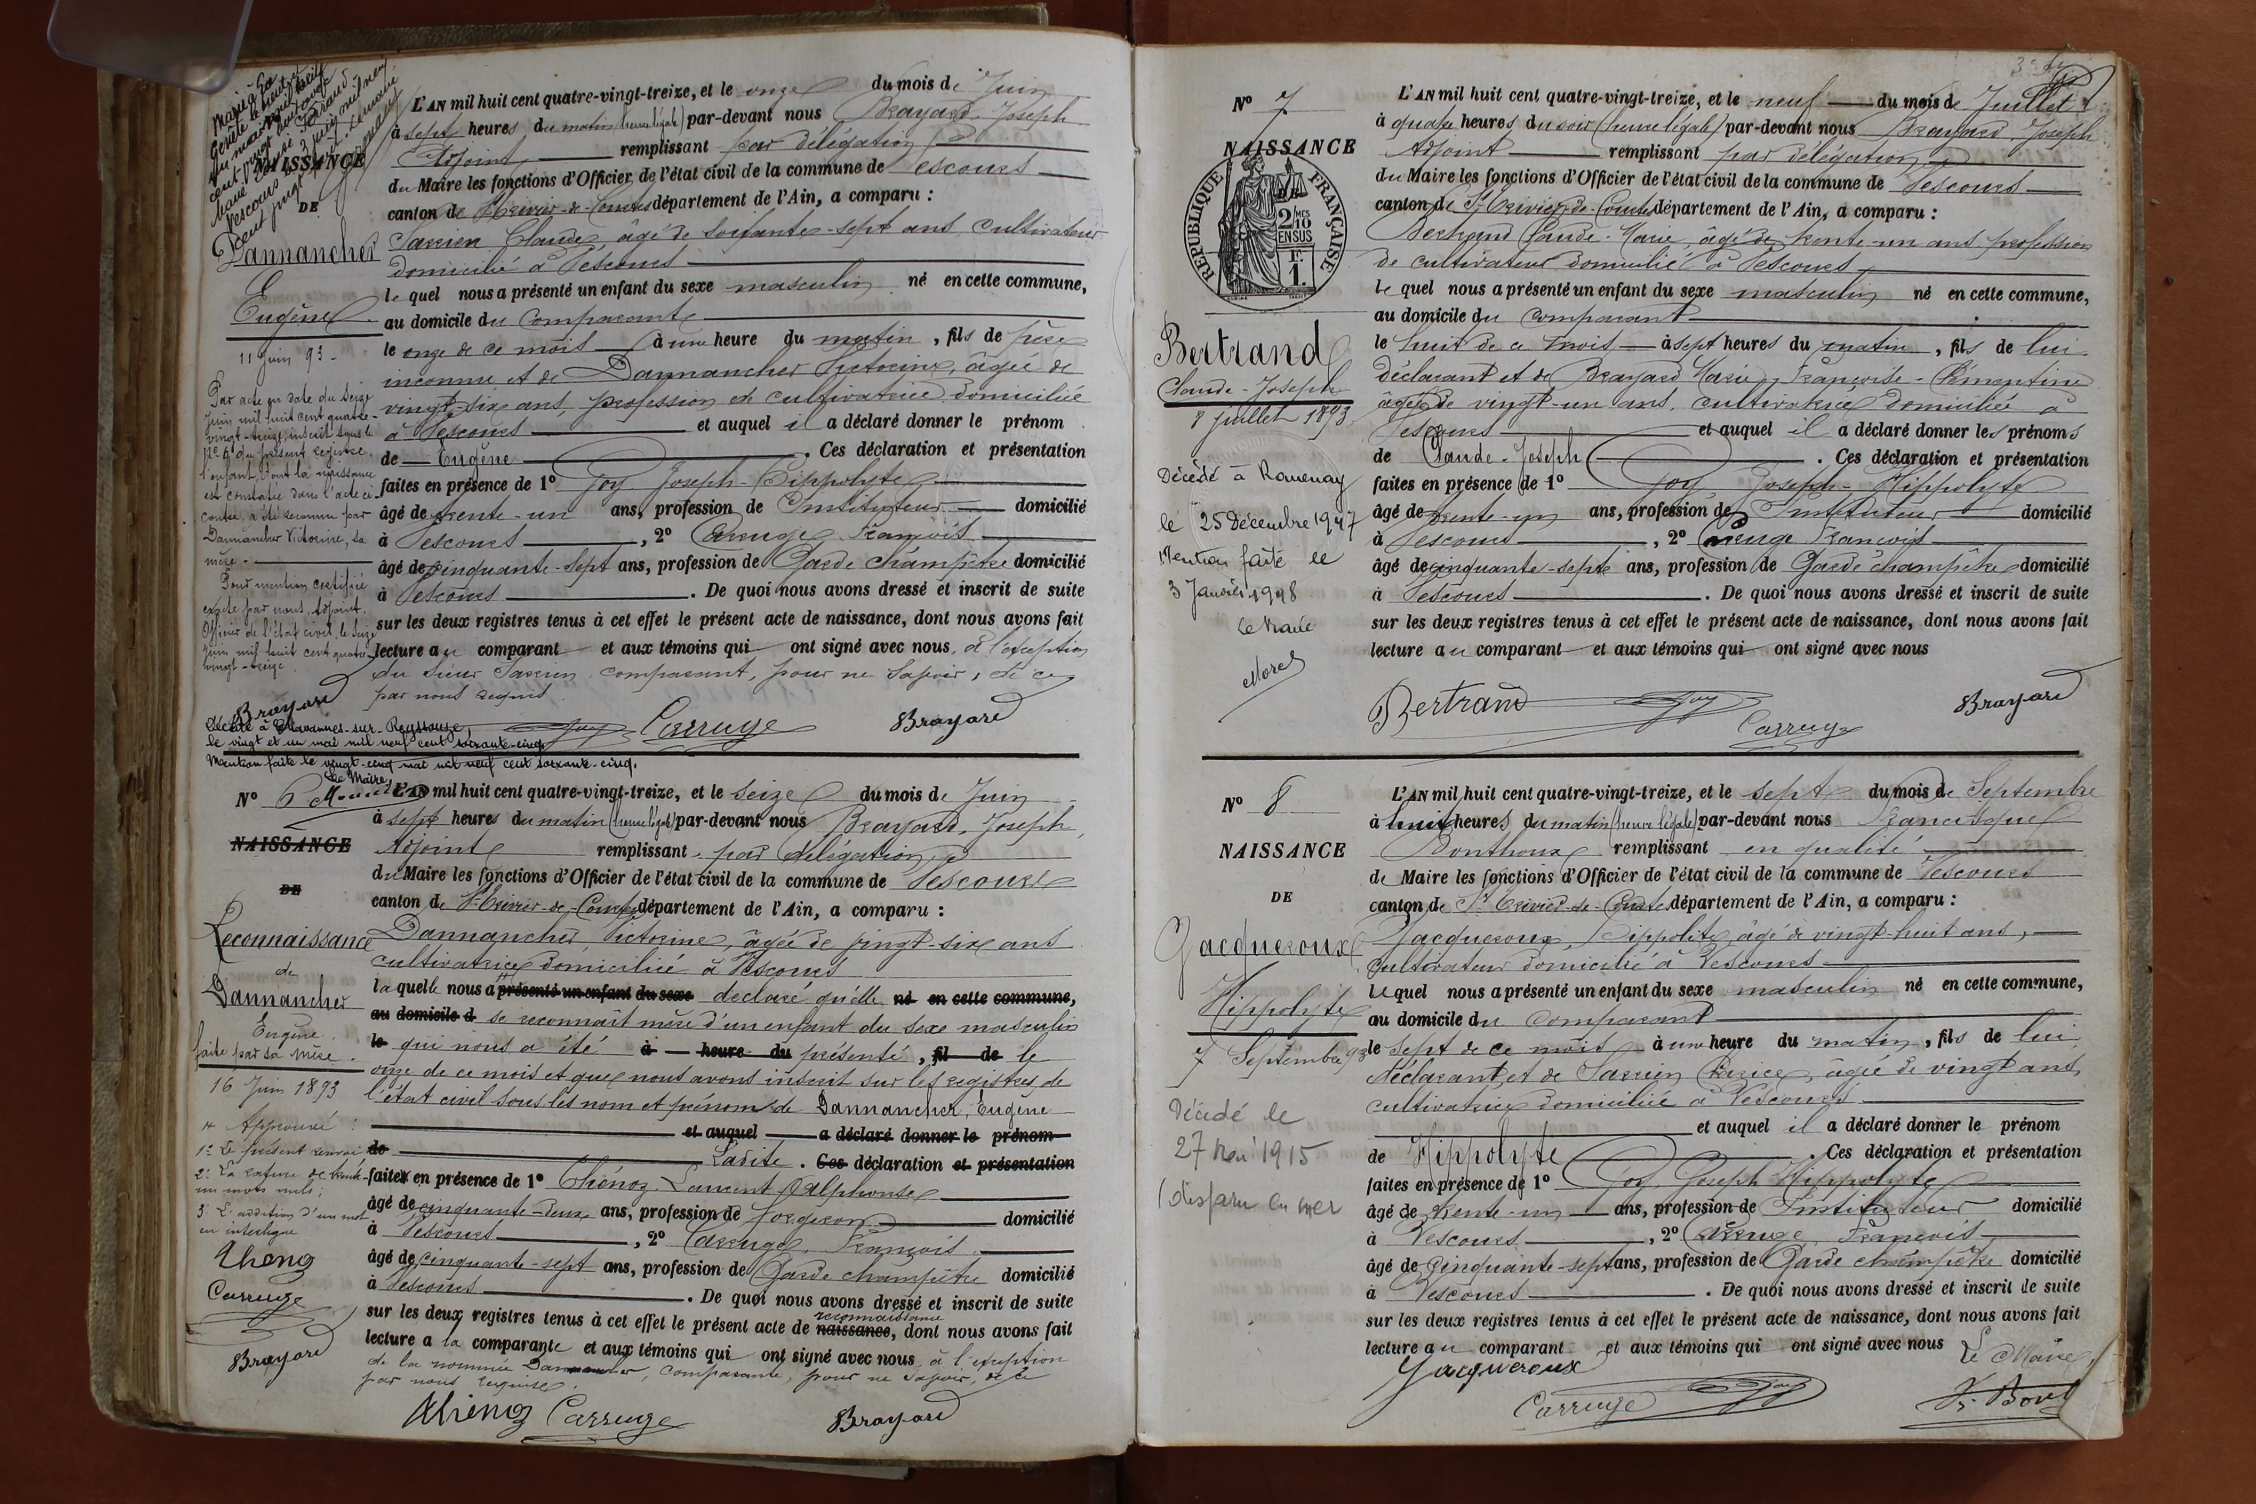 NAISSANCE
DE
Dannancher
Eugène
11 Juin 93
Par acte en date du seize
Juin mil huit cent quatre-
vingt-treize, inscrit sous le
Nº 6 du présent registre,
l'enfant dont la naissance
est constatée dans l'acte ci-
contre, a été reconnu par
Dannancher Victorine, sa
mère.
Pour mention certifiée
exacte par nous, Adjoint,
Officier de l'état civil, le seize
Juin mil huit cent quatre-
vingt-treize.
Brayard
Décédé à Chavannes-sur-Reyssouze,
le vingt et un mai mil neuf cent soixante-cinq.
Mention faite le vingt-cinq mai mil neuf cent soixante-cinq.
Le Maire,
L'AN mil huit cent quatre-vingt-treize, et le onze du mois de Juin
à sept heures du matin (heure légale) par-devant nous Brayard, Joseph
Adjoint remplissant par délégation
du Maire les fonctions d'Officier de l'état civil de la commune de Vescours
canton de St Trivier-de-Courtes département de l'Ain, a comparu :
Claude, âgé de soixante-sept ans, cultivateur
domicilié à Vescours
lequel nous a présenté un enfant du sexe masculin né en cette commune,
au domicile du comparant
le onze de ce mois à une heure du matin, fils de père
inconnu et de Dannancher Victorine, âgée de
vingt-six ans, profession de cultivatrice domiciliée
à Vescours et auquel il a déclaré donner le prénom
de Eugène. Ces déclaration et présentation
faites en présence de 1º Goy Joseph-Hippolyte
âgé de trente-un ans, profession de Instituteur domicilié
à Vescours, 2º Carruge, François
âgé de cinquante-sept ans, profession de Garde champêtre domicilié
à Vescours. De quoi nous avons dressé et inscrit de suite
sur les deux registres tenus à cet effet le présent acte de naissance, dont nous avons fait
lecture au comparant et aux témoins qui ont signé avec nous, à l'exception
du sieur comparant, pour ne savoir, de ce
par nous requis.
Goy Carruge Brayard
Nº 6
NAISSANCE
DE
Reconnaissance
de
Dannancher
Eugène
faite par sa mère.
16 Juin 1893
Approuvé :
1º Le présent renvoi
2º La rature de trente-
un mots nuls ;
3º L'addition d'un mot
en interligne
Thénoz
Carruge
Brayard
L'AN mil huit cent quatre-vingt-treize, et le seize du mois de Juin
à sept heures du matin (heure légale) par-devant nous Brayard, Joseph,
Adjoint remplissant par délégation
du Maire les fonctions d'Officier de l'état civil de la commune de Vescours
canton de St Trivier-de-Courtes département de l'Ain, a comparu :
Dannancher, Victorine, âgée de vingt-six ans
cultivatrice domiciliée à Vescours
laquelle nous a présenté un enfant du sexe déclaré qu'elle né en cette commune,
au domicile d se reconnaît mère d'un enfant du sexe masculin
le qui nous a été à heure du présenté, fil de le
onze de ce mois et que nous avons inscrit sur les registres de
l'état civil sous les nom et prénom de Dannancher, Eugène
et auquel a déclaré donner le prénom
de Ladite. Ces déclaration et présentation
faites en présence de 1º Thénoz Laurent Alphonse
âgé de cinquante-deux ans, profession de forgeron domicilié
à Vescours, 2º Carruge, François
âgé de cinquante-sept ans, profession de Garde champêtre domicilié
à Vescours. De quoi nous avons dressé et inscrit de suite
reconnaissance
sur les deux registres tenus à cet effet le présent acte de naissance, dont nous avons fait
lecture a la comparante et aux témoins qui ont signé avec nous, à l'exception
de la nommée Dannancher, comparante, pour ne savoir, de ce
par nous requise.
Thénoz Carruge Brayard
Nº 7
NAISSANCE
DE
RÉPUBLIQUE FRANÇAISE
2/10 MES
EN SUS
1 F.
Bertrand
Claude-Joseph
8 Juillet 1893
Décédé à Romenay
le 25 Décembre 1947
Mention faite le
3 Janvier 1948
Le Maire
Morel
L'AN mil huit cent quatre-vingt-treize, et le neuf du mois de Juillet
à quatre heures du soir (heure légale) par-devant nous Brayard, Joseph
Adjoint remplissant par délégation
du Maire les fonctions d'Officier de l'état civil de la commune de Vescours
canton de St Trivier-de-Courtes département de l'Ain, a comparu :
Bertrand Claude-Marie, âgé de trente-un ans profession
de cultivateur domicilié à Vescours
lequel nous a présenté un enfant du sexe masculin né en cette commune,
au domicile du comparant
le huit de ce mois à sept heures du matin, fils de lui
déclarant et de Brayard Marie-Françoise-Clémentine
âgée de vingt-un ans, cultivatrice domiciliée à
Vescours et auquel il a déclaré donner les prénoms
de Claude-Joseph. Ces déclaration et présentation
faites en présence de 1º Goy Joseph-Hippolyte
âgé de trente-un ans, profession de Instituteur domicilié
à Vescours, 2º Carruge François
âgé de cinquante-sept ans, profession de Garde champêtre domicilié
à Vescours. De quoi nous avons dressé et inscrit de suite
sur les deux registres tenus à cet effet le présent acte de naissance, dont nous avons fait
lecture au comparant et aux témoins qui ont signé avec nous
Bertrand Goy Carruge Brayard
Nº 8
NAISSANCE
DE
Jacqueroux
Hippolyte
7 Septembre 93
Décédé le
27 1915
(disparu en mer
L'AN mil huit cent quatre-vingt-treize, et le sept du mois de Septembre
à heures du matin (heure légale) par-devant nous Francisque
Bonthoux remplissant en qualité
de Maire les fonctions d'Officier de l'état civil de la commune de Vescours
canton de St Trivier-de-Courtes département de l'Ain, a comparu :
Jacqueroux, Hippolite, âgé de vingt-huit ans,
cultivateur domicilié à Vescours
lequel nous a présenté un enfant du sexe masculin né en cette commune,
au domicile du comparant
le sept de ce mois à une heure du matin, fils de lui
déclarant, et de âgée de vingt ans,
cultivatrice domiciliée à Vescours
et auquel il a déclaré donner le prénom
de Hippolyte. Ces déclaration et présentation
faites en présence de 1º Goy, Joseph Hippolyte
âgé de trente-un ans, profession de Instituteur domicilié
à Vescours, 2º Carruge, François
âgé de cinquante-sept ans, profession de Garde champêtre domicilié
à Vescours. De quoi nous avons dressé et inscrit de suite
sur les deux registres tenus à cet effet le présent acte de naissance, dont nous avons fait
lecture au comparant et aux témoins qui ont signé avec nous Le Maire,
Jacqueroux
Carruge Goy